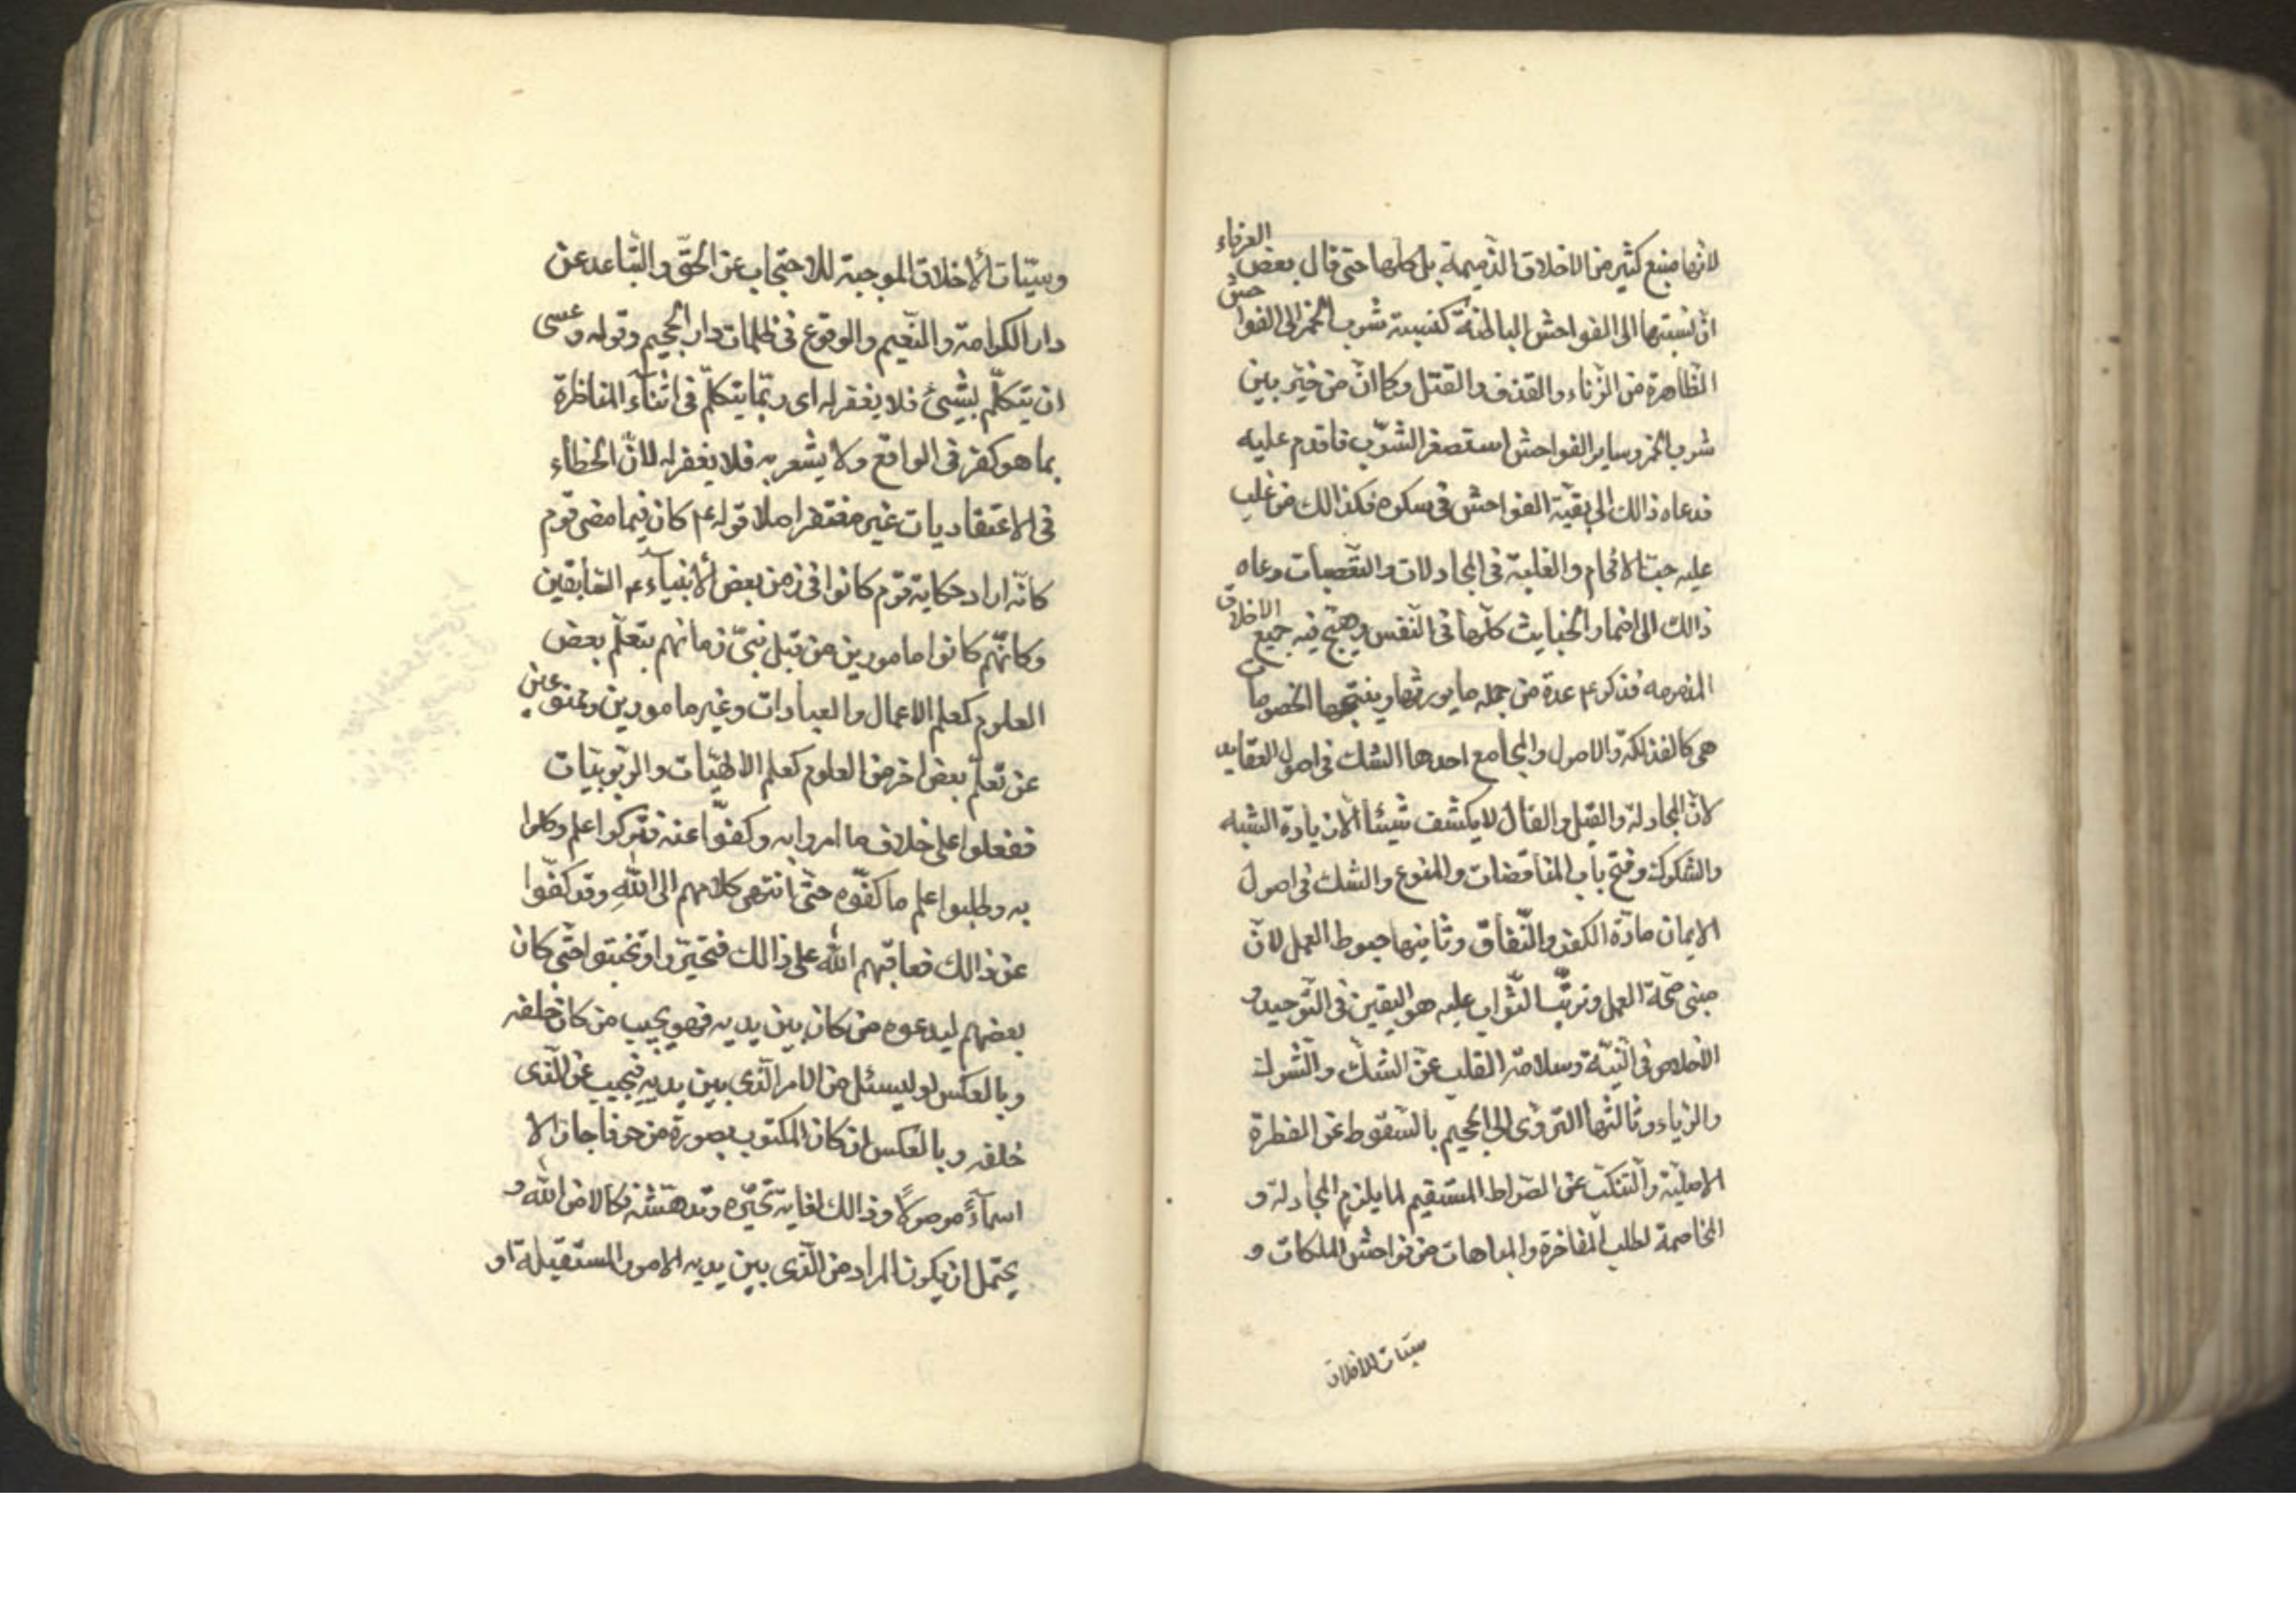 لانها منبع كثير من الاخلاق الذميمة بل كلها حتى قال بعض العرفاء
ان نسبتها الى الفواحش الباطنة كنسبة شرب الخمر الى الفواحش
الظاهرة من الزناء والقذف والقتل وكما انّ من خيّر بين
شرب الخمر وساير الفواحش استصغر الشرب فاقدم عليه
فدعاه ذالك الى بقيّة الفواحش فى سكره فكذالك من غلب
عليه حبّ الافحام والغلبة فى المجادلات والتعصبات دعاه
ذالك الى اضمار الخبايث كلّها فى النّفس وهيّج فيه جميع الاخلاق
المذمومه فذكر ع عدة من جمله ما يورثها وينتجها الخصومات
هى كالفذلكة والاصول والمجامع احدها الشك فى اصول العقايد
لانّ المجادلة والقيل والقال لا يكشف شيئا الّا زيادة الشبه
والشكوك وفتح باب المناقضات والمنوع والشك فى اصول
الايمان مادّة الكفر والنّفاق وثانيها حبوط العمل لانّ
مبنى صحّة العمل وترتّب الثّواب عليه هو اليقين فى التّوحيد و
الاخلاص فى النيّة وسلامة القلب عن الشكّ والشرك
والرياء وثالثها التردّى الى الجحيم بالسّقوط عن الفطرة
الاصليّة والتنكّب عن الصّراط المستقيم لما يلزم المجادلة و
المخاصمة لطلب المفاخرة والمباهات من فواحش الملكات و
سيّئات الاخلاق
وسيّئات الأخلاق الموجبة للاحتجاب عن الحقّ والتّباعد عن
دار الكرامة والنّعيم والوقوع فى ظلمات دار الجحيم وقوله وعسى
ان يتكلّم بشيئ فلا يغفر له اى ربّما يتكلّم فى اثنآء المناظرة
بما هو كفر فى الواقع ولا يشعر به فلا يغفر له لانّ الخطاء
فى الاعتقاديات غير مغتفر اصلا قوله ع كان فيما مضى قوم
كانّه اراد حكاية قوم كانوا فى زمن بعض الأنبيآء ع السّابقين
وكانّهم كانوا مامورين من قبل نبىّ زمانهم بتعلّم بعض
العلوم كعلم الاعمال والعبادات وغير مامورين وممنوعين
عن تعلّم بعض اخر من العلوم كعلم الالهيّات والربوبيّات
ففعلوا على خلاف ما امروا به وكفّوا عنه فتركوا علم وكلوا
به وطلبوا علم ما كفّوه حتّى انتهى كلامهم الى الله وقد كفّوا
عن ذالك فعاقبهم الله على ذالك فتحيّروا وتخبتوا حتّى كان
بعضهم ليدعوه من كان بين يديه فهو يجيب من كان خلفه
وبالعكس او ليسئل من الامر الّذى بين يديه فيجيب عن الّذى
خلفه وبالعكس ان كان المكتوب بصورة من حرفا جازّا لا
اسمآءً موصولًا وذالك لغاية تحيّره وتدهّشه نكالا من الله و
يحتمل ان يكون المراد من الّذى بين يديه الامور المستقبلة او